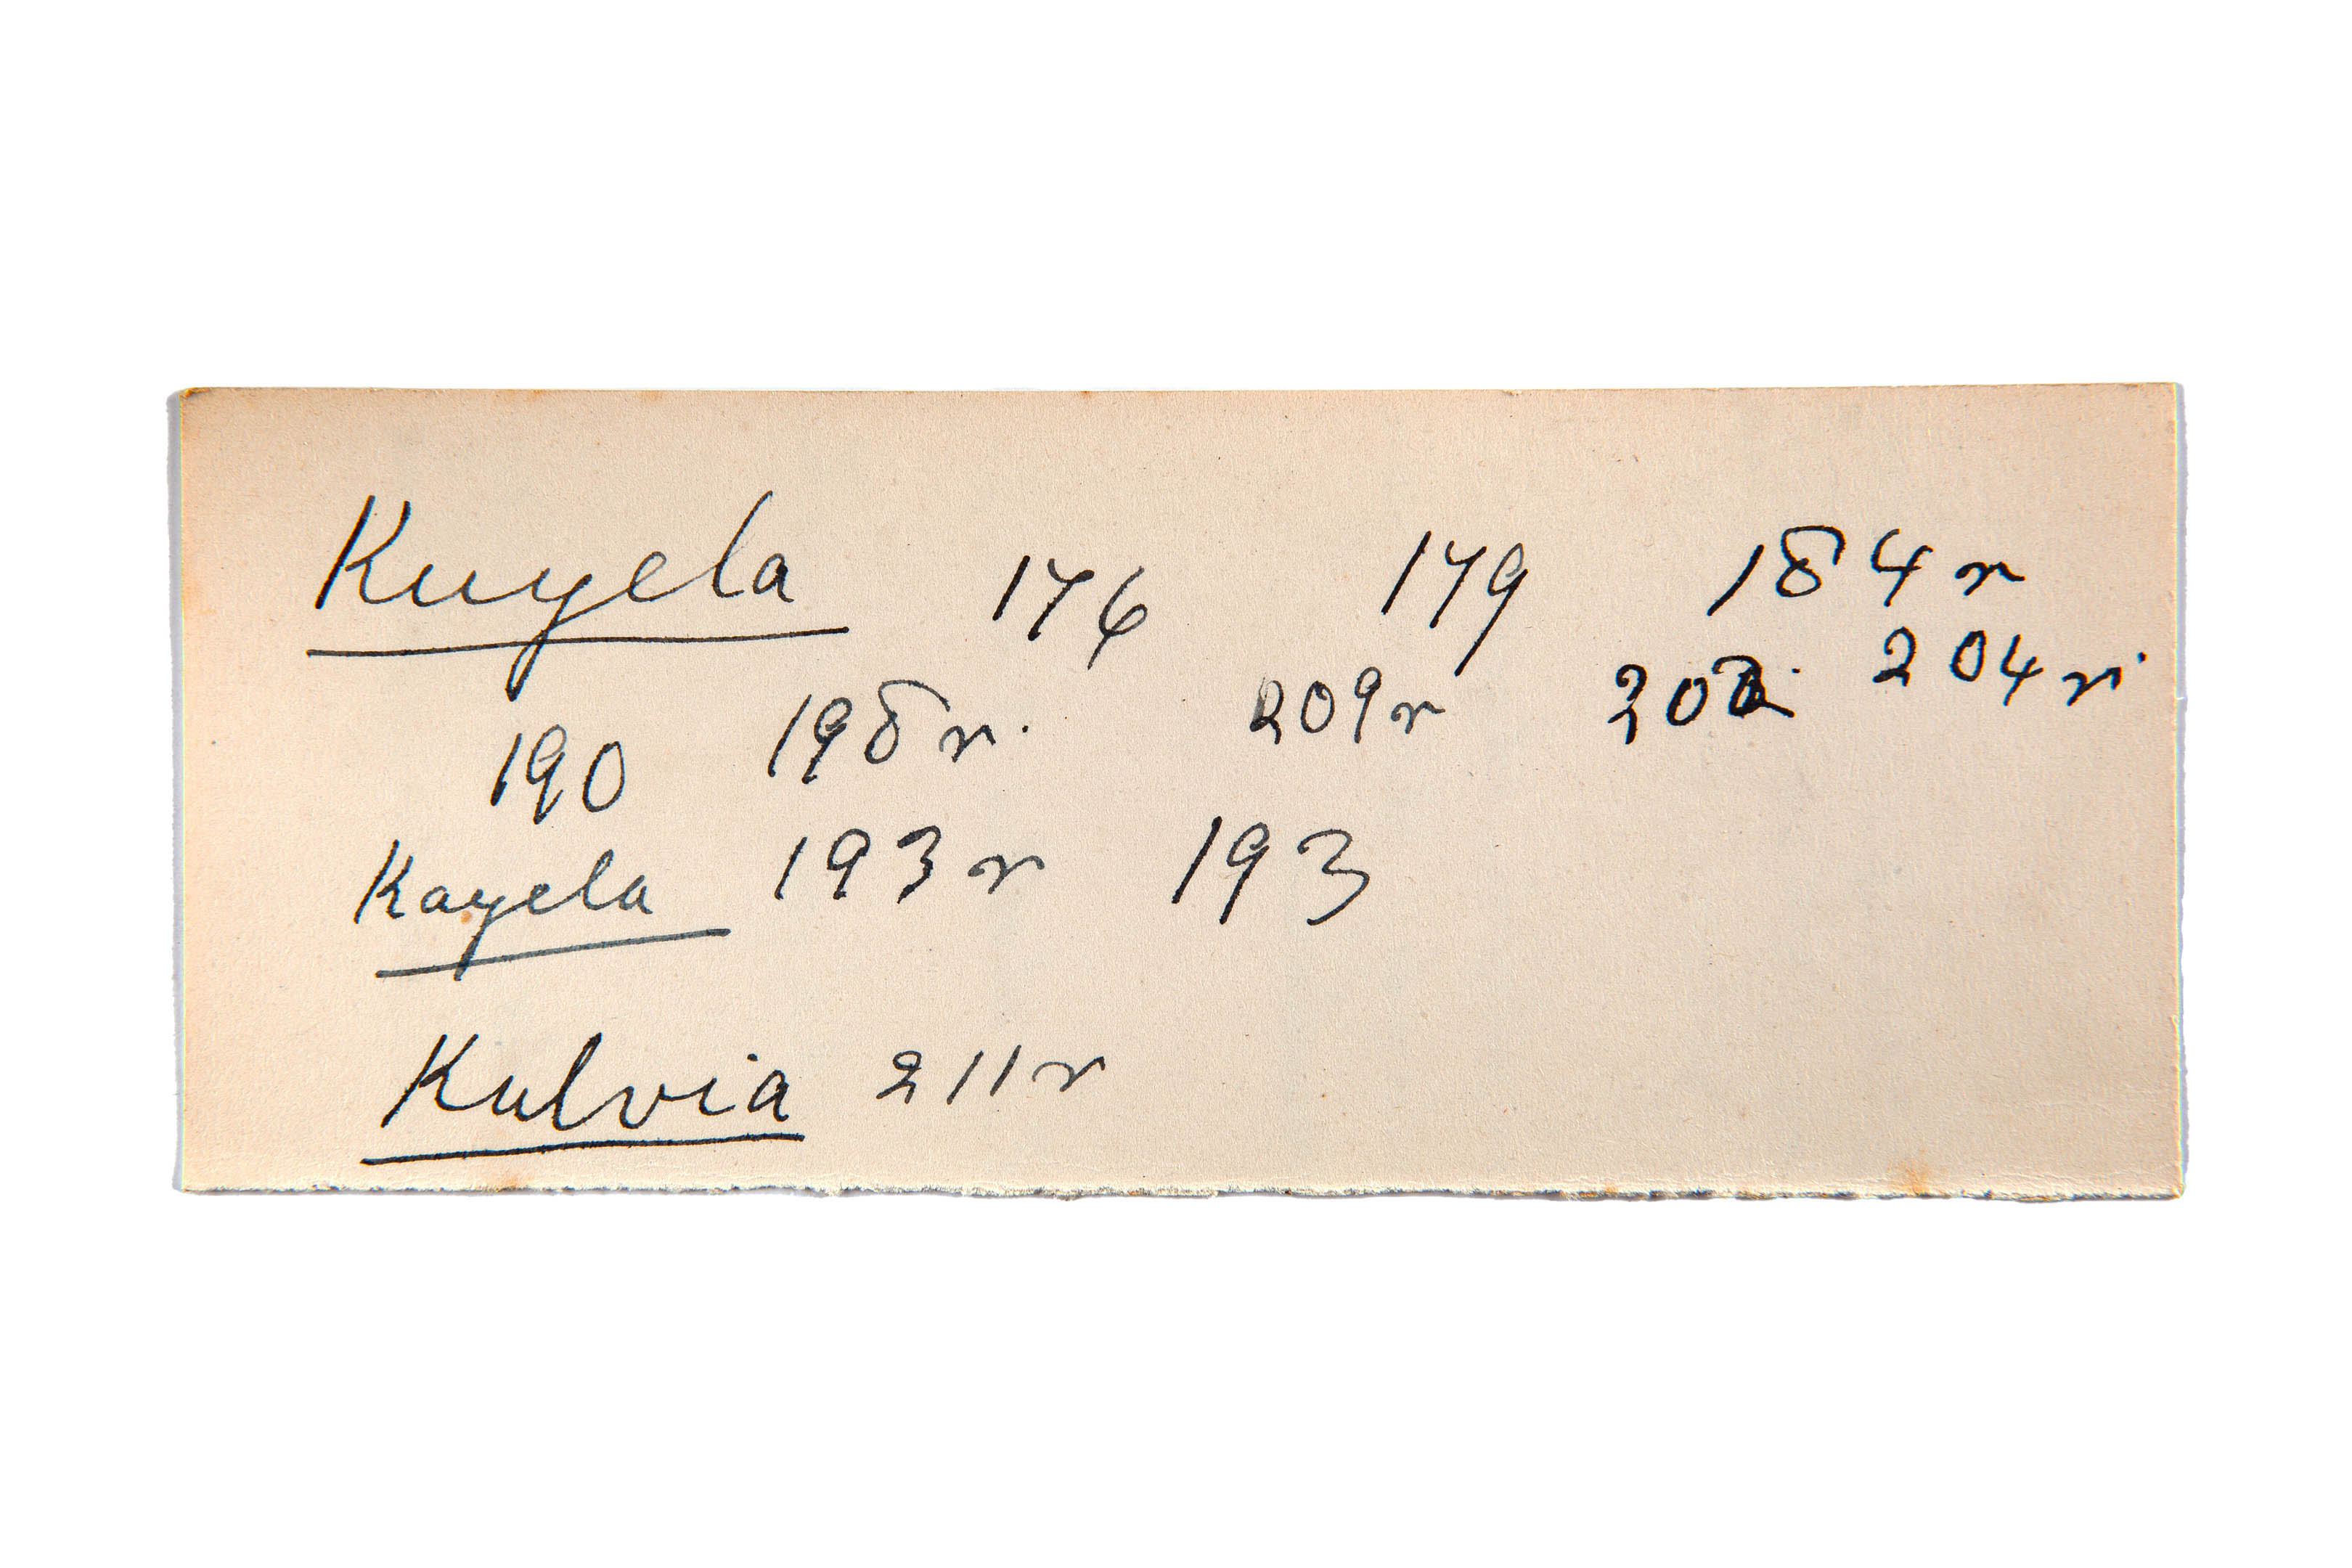 Kuyela 176 179 184 r
190 198 r. 209 r 202. 204 r.
Kayela 193 r 193
Kulvia 211 r